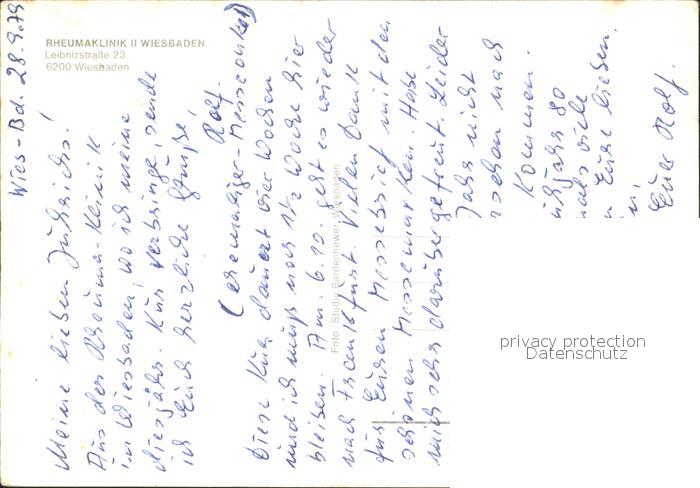 RHEUMAKLINIK II WIESBADEN
Leibnizstraße 23
6200 Wiesbaden
Wies-Bd. 28.9.79
Meine lieben
Aus der Rheuma-Klinik
in Wiesbaden, wo ich meine
diesjähr. Kur verbringe, sende
ich Euch herzliche Grüße,
Rolf.
(ehemaliger-Messeonkel)
Diese Kur dauert vier Wochen
und ich muß noch 1½ Woche hier
bleiben. Am 6.10. geht es wieder
nach Frankfurt. Vielen Dank
für Euren Messebrief mit den
schönen Messemarken. Habe
mich sehr darüber gefreut. Leider
Jahr nicht
schon nach
kommen.
jahr 80
viele
Eure lieben
Euer Rolf.
Foto Studio Bardenhewer Wiesbaden
privacy protection
Datenschutz